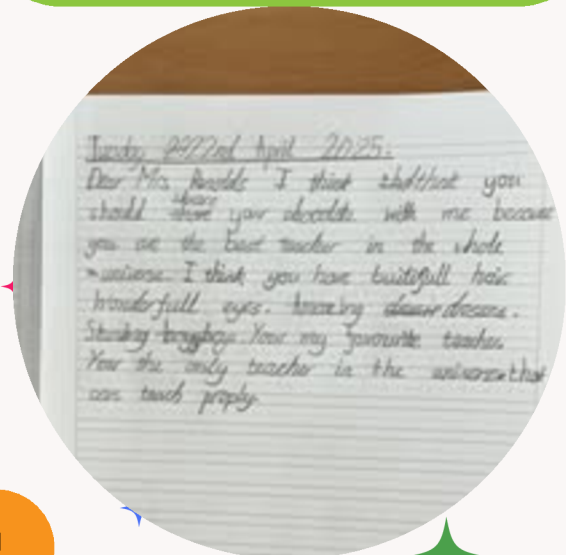 Tuesday 22nd April 2025.
Dear Mrs I think that you
should share your chocolate with me because
you are the best teacher in the whole
universe. I think you have buitifull hair
wonderfull eyes. Amazing
Your my favourite teacher.
Your the only teacher in the universe that
can teach proply.